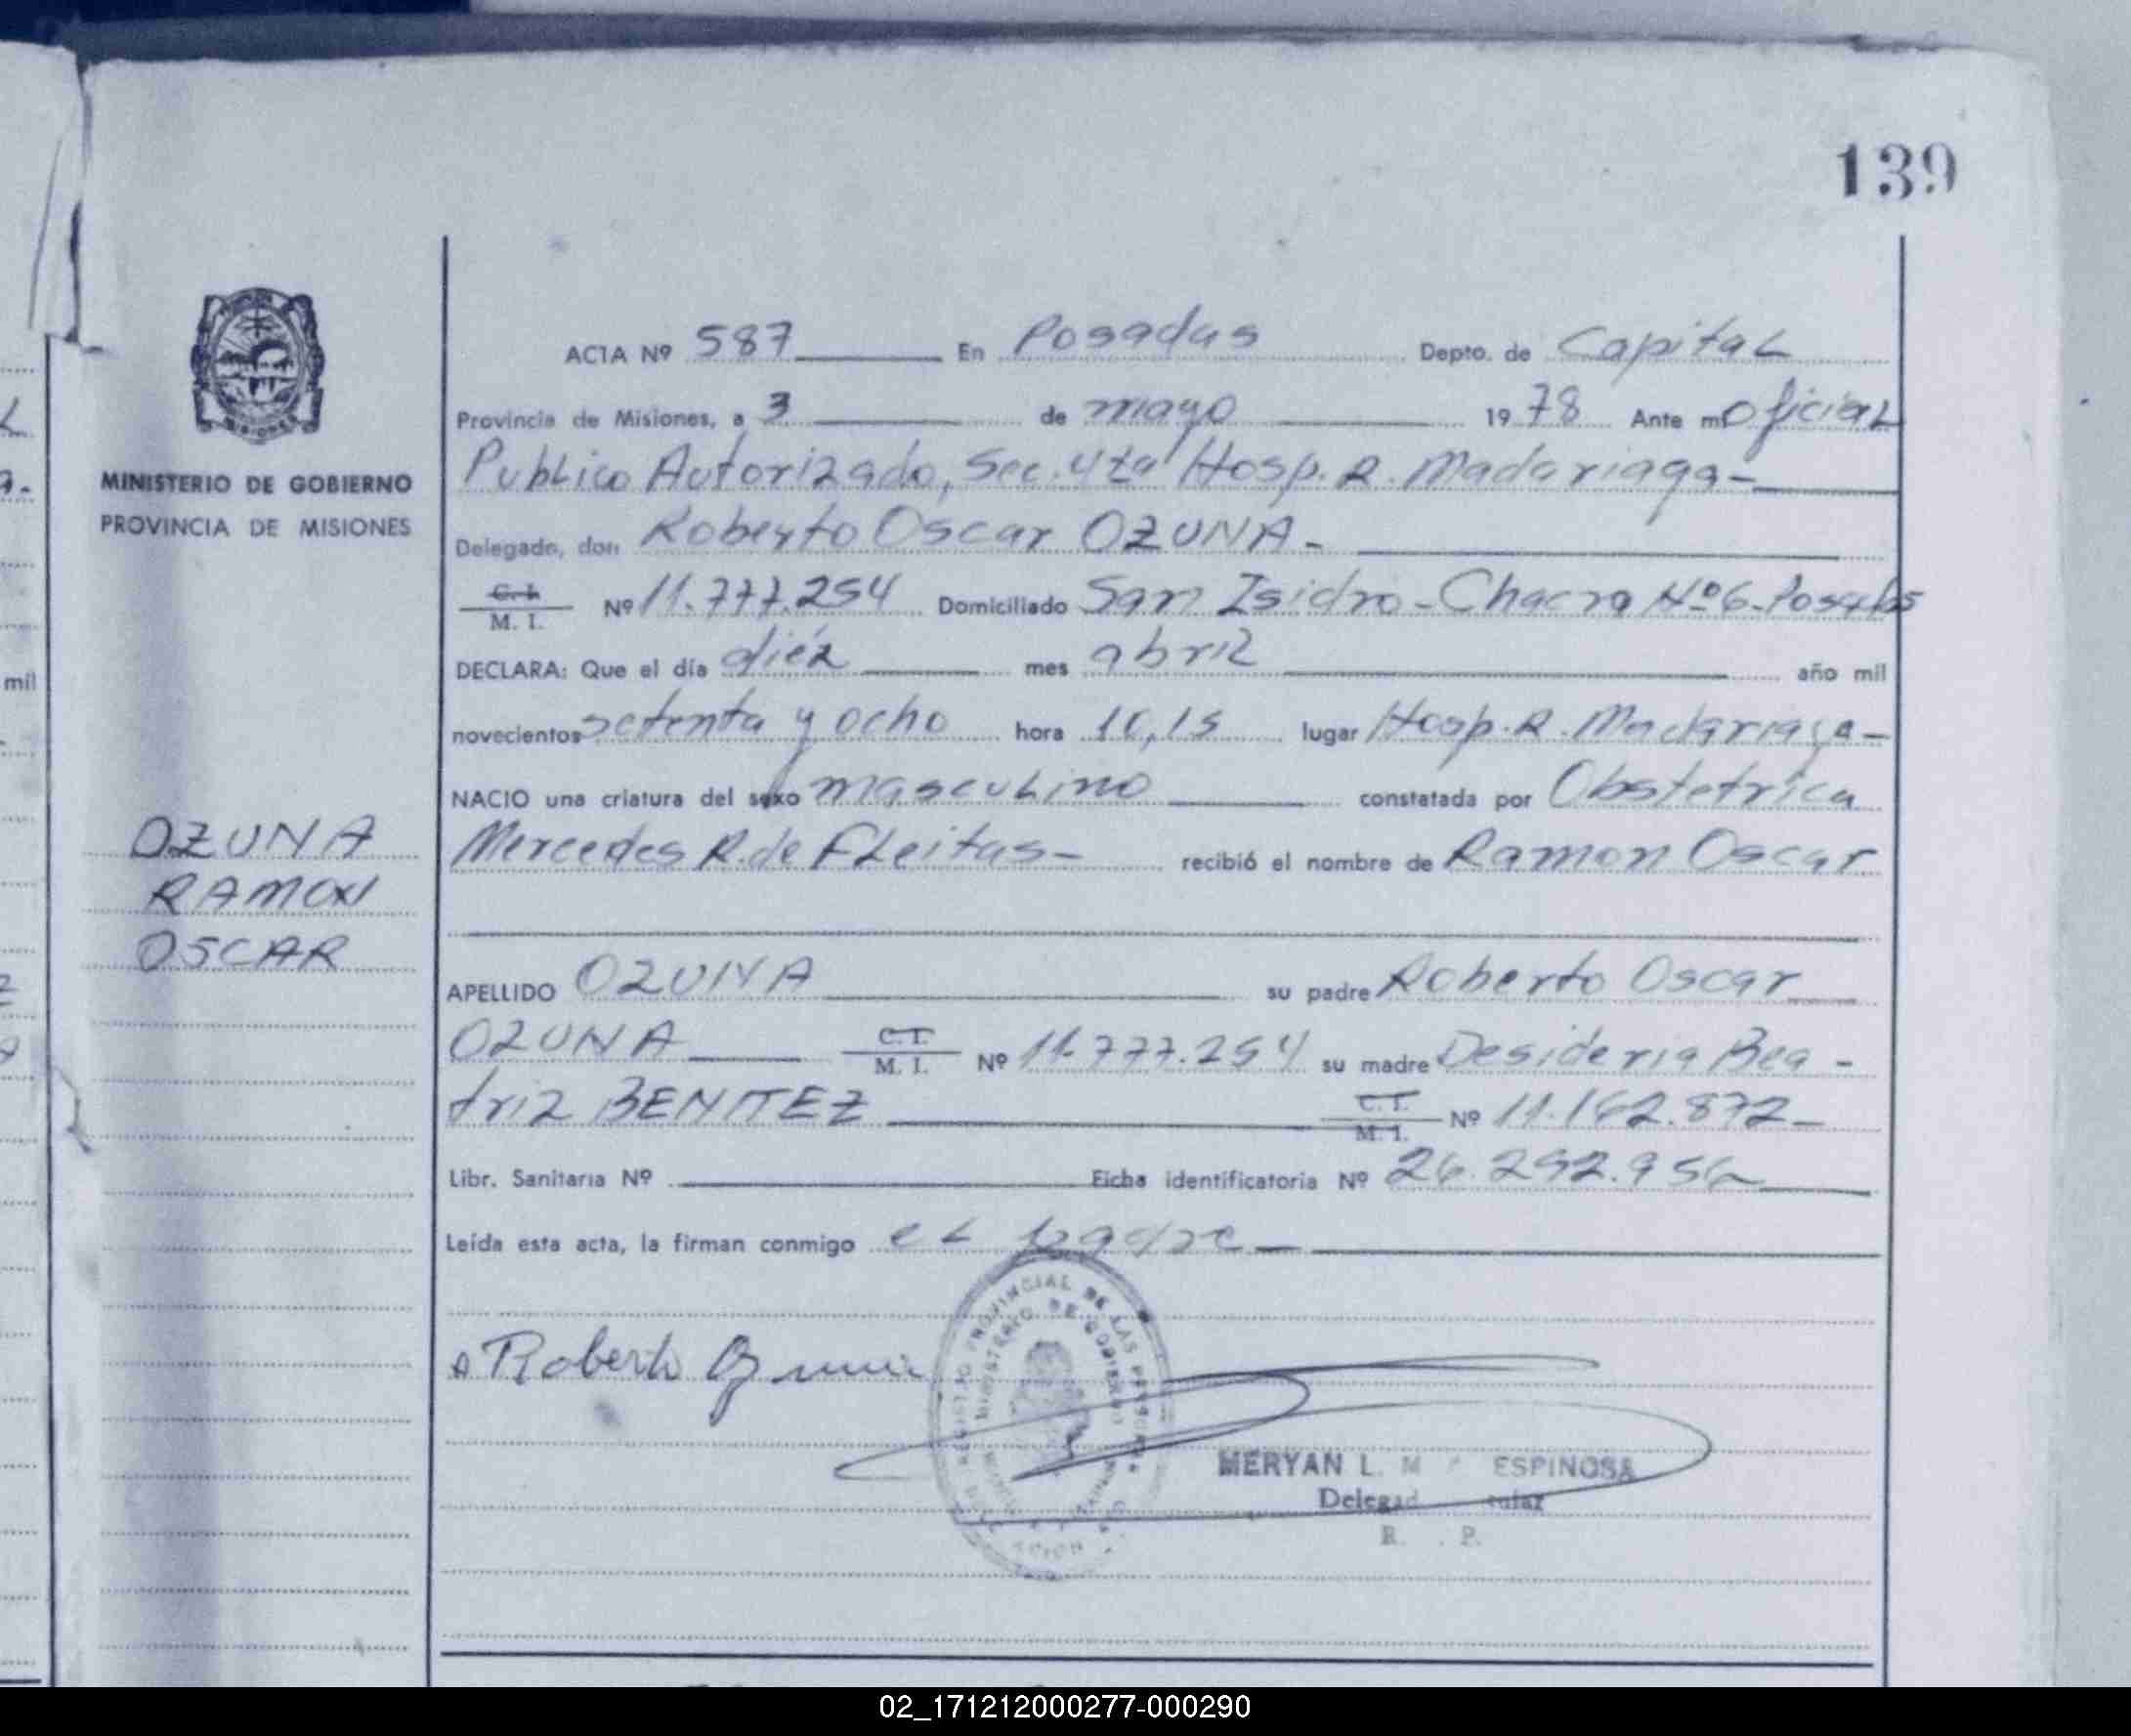 139
ACTA Nº 587 En Posadas Depto. de Capital
Provincia de Misiones, a 3 de mayo 1978 Ante mí Oficial
Publico Autorizado, Sec. 4ta Hosp. R. Madariaga-
MINISTERIO DE GOBIERNO
PROVINCIA DE MISIONES
Delegado, don Roberto Oscar OZUNA-
C. I. M. I. Nº 11.777.254 Domiciliado San Isidro-Chacra Nº6-Posadas
DECLARA: Que el día diéz mes abril año mil
novecientos setenta y ocho hora 10,15 lugar Hosp. R. Madariaga-
NACIO una criatura del sexo masculino constatada por Obstetrica
Mercedes R. de Fleitas- recibió el nombre de Ramon Oscar
OZUNA
RAMON
OSCAR
APELLIDO OZUNA su padre Roberto Oscar
OZUNA C.I. M. I. Nº 11.777.254 su madre Desideria Bea-
triz BENITEZ C.I. M. I. Nº 11.162.872-
Libr. Sanitaria Nº Ficha identificatoria Nº 26.292.956
Leída esta acta, la firman conmigo el padre-
Roberto Ozuna
REGISTRO PROVINCIAL DE LAS PERSONAS
MINISTERIO DE GOBIERNO
MERYAN L. M ESPINOSA
Delegad tular
R. . P.
mil
02_171212000277-000290